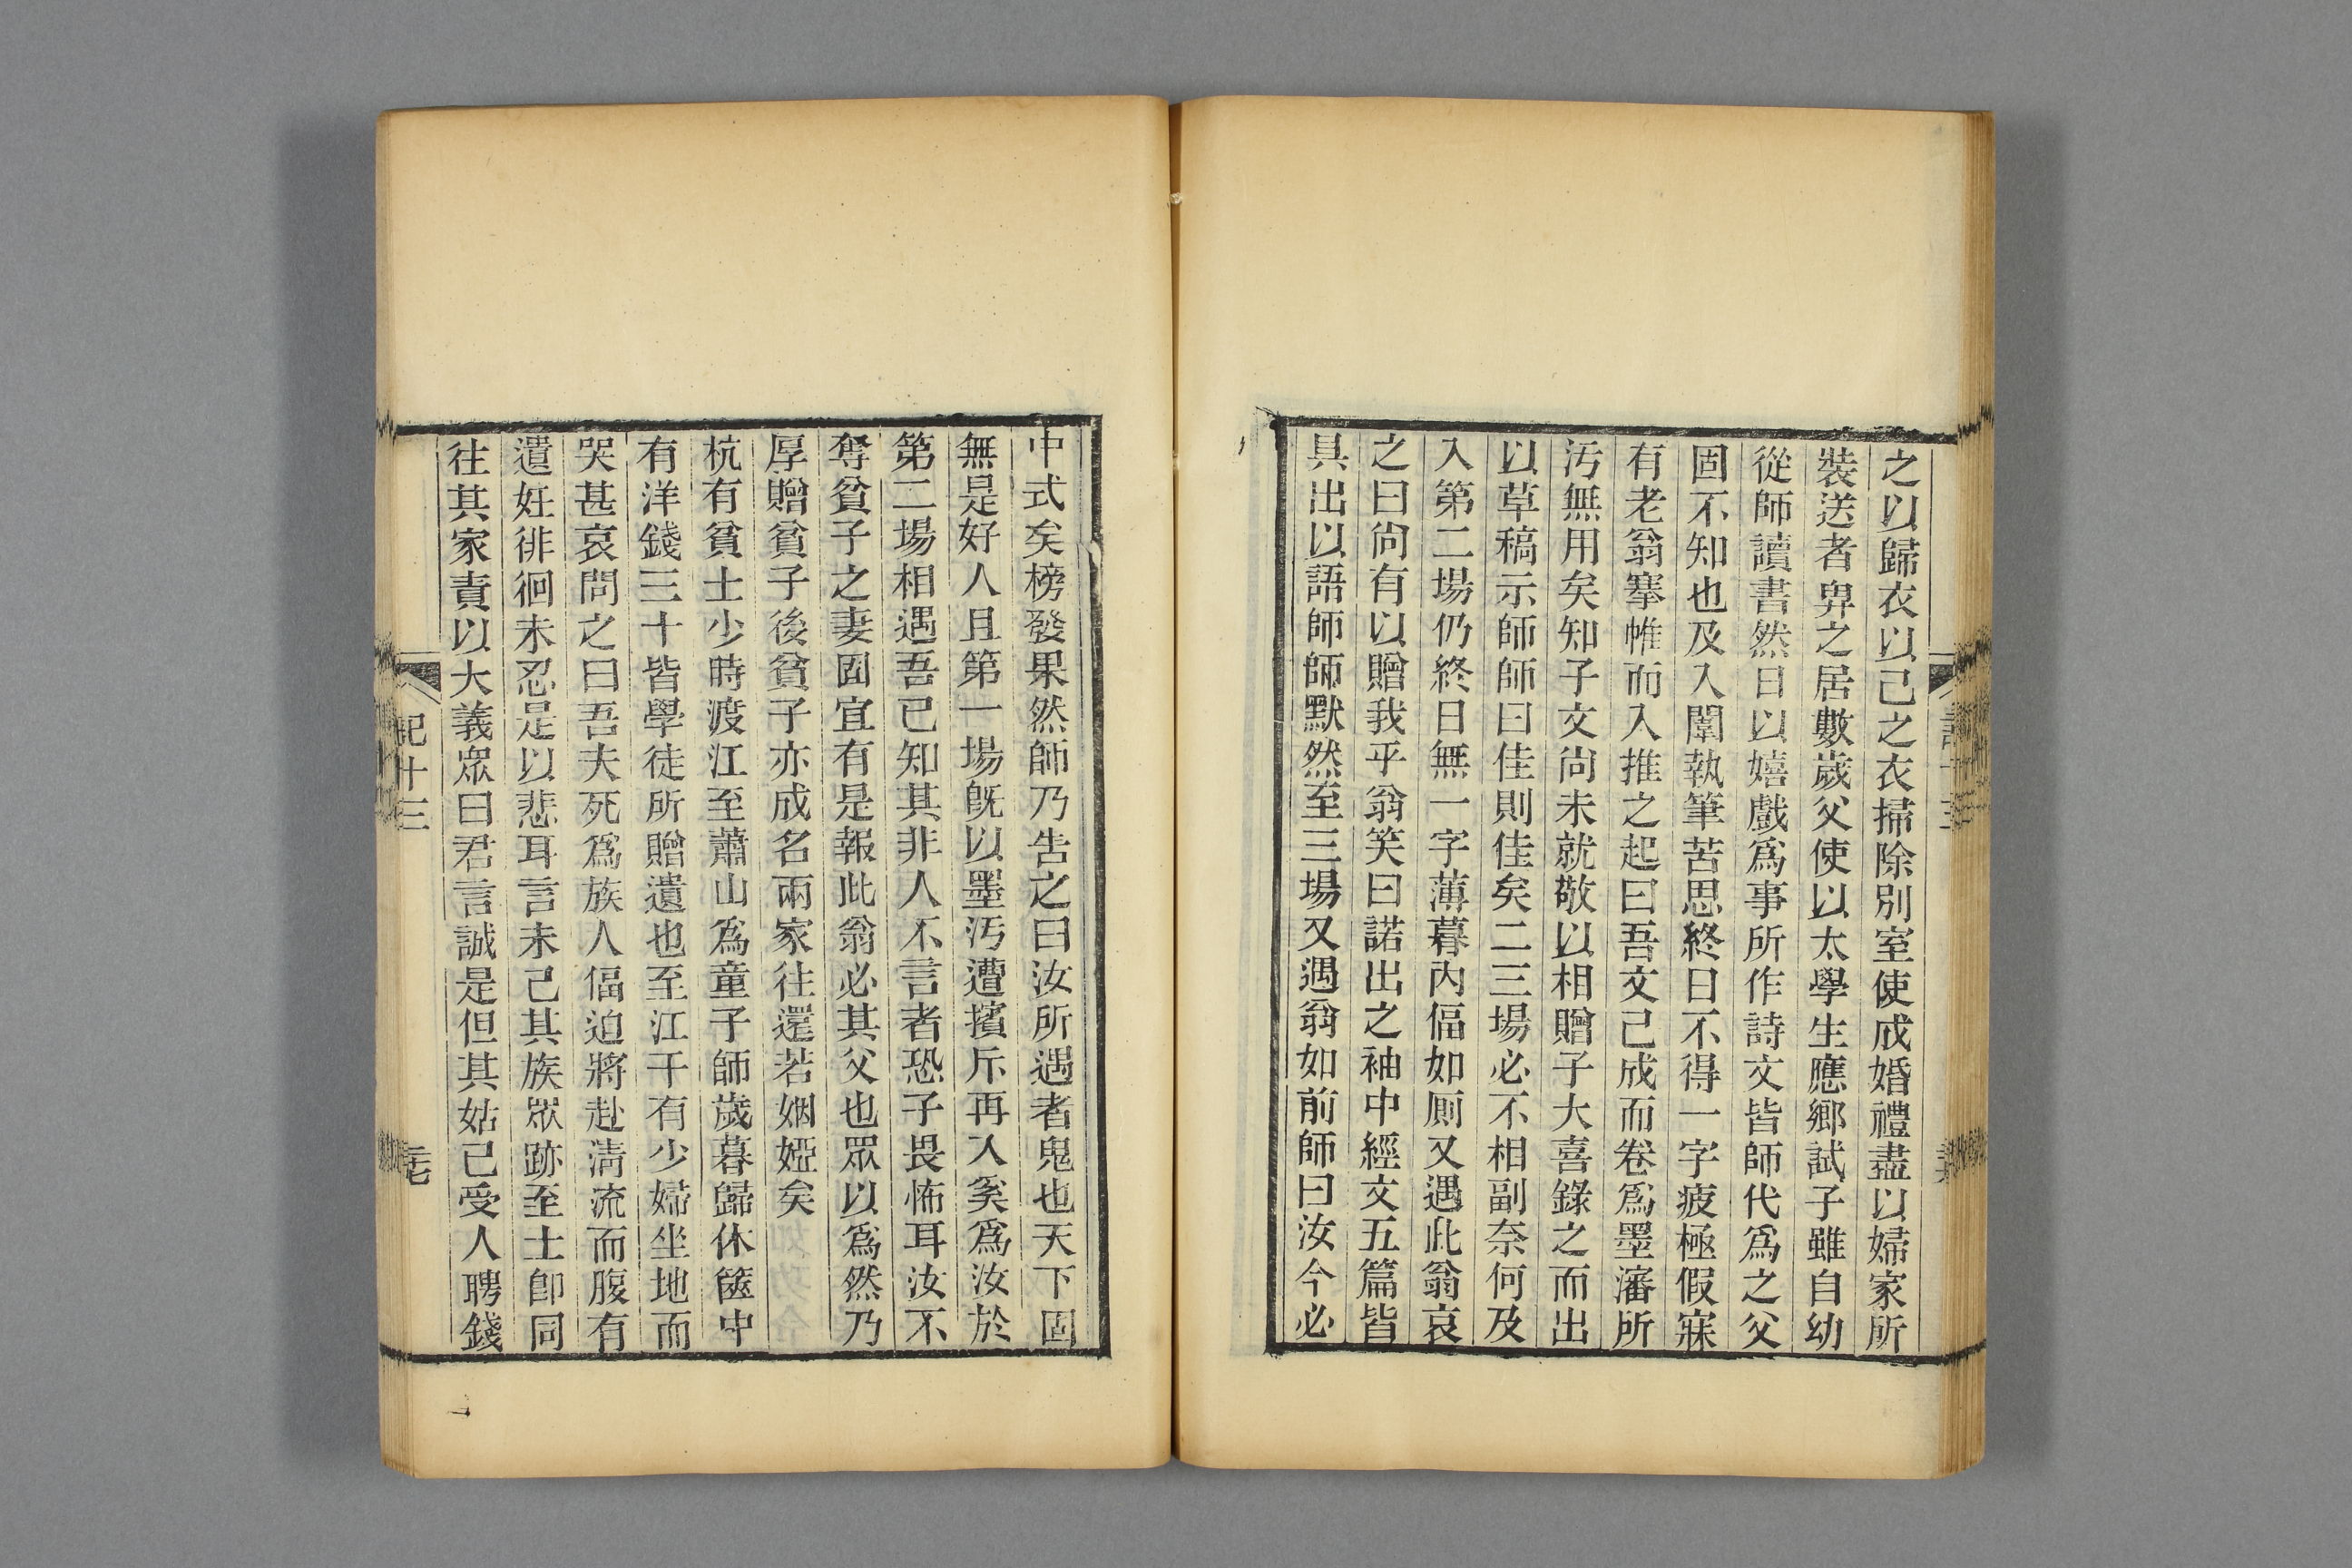 之以歸衣以己之衣掃除別室使成婚禮盡以婦家所
裝送者畀之居數歲父使以太學生應鄉試子雖自幼
從師讀書然日以嬉戲爲事所作詩文皆師代爲之父
固不知也及入闈執筆苦思終日不得一字疲極假寐
有老翁搴帷而入推之起曰吾文已成而卷爲墨瀋所
汚無用矣知子文尚未就敬以相贈子大喜錄之而出
以草稿示師師曰佳則佳矣二三場必不相副奈何及
入第二場仍終日無一字薄暮內偪如厠又遇此翁哀
之曰尙有以贈我乎翁笑曰諾出之袖中經文五篇皆
具出以語師師默然至三場又遇翁如前師曰汝今必
中式矣榜發果然師乃吿之曰汝所遇者鬼也天下固
無是好人且第一場旣以墨汚遭擯斥再入奚爲汝於
第二場相遇吾已知其非人不言者恐子畏怖耳汝不
奪貧子之妻固宜有是報此翁必其父也眾以爲然乃
厚贈貧子後貧子亦成名兩家往還若姻婭矣
杭有貧士少時渡江至蕭山爲童子師歲暮歸休篋中
有洋錢三十皆學徒所贈遺也至江干有少婦坐地而
哭甚哀問之曰吾夫死爲族人偪迫將赴淸流而腹有
遺妊徘徊未忍是以悲耳言未已其族眾跡至士卽同
往其家責以大義眾曰君言誠是但其姑已受人聘錢
記十三